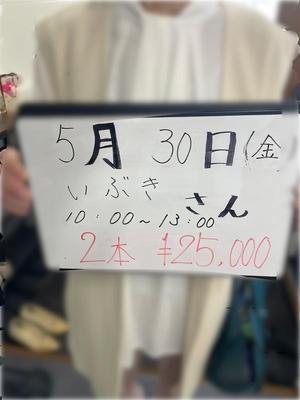 5月 30日(金
いぶき さん
10:00~13:00
2本 ¥25,000